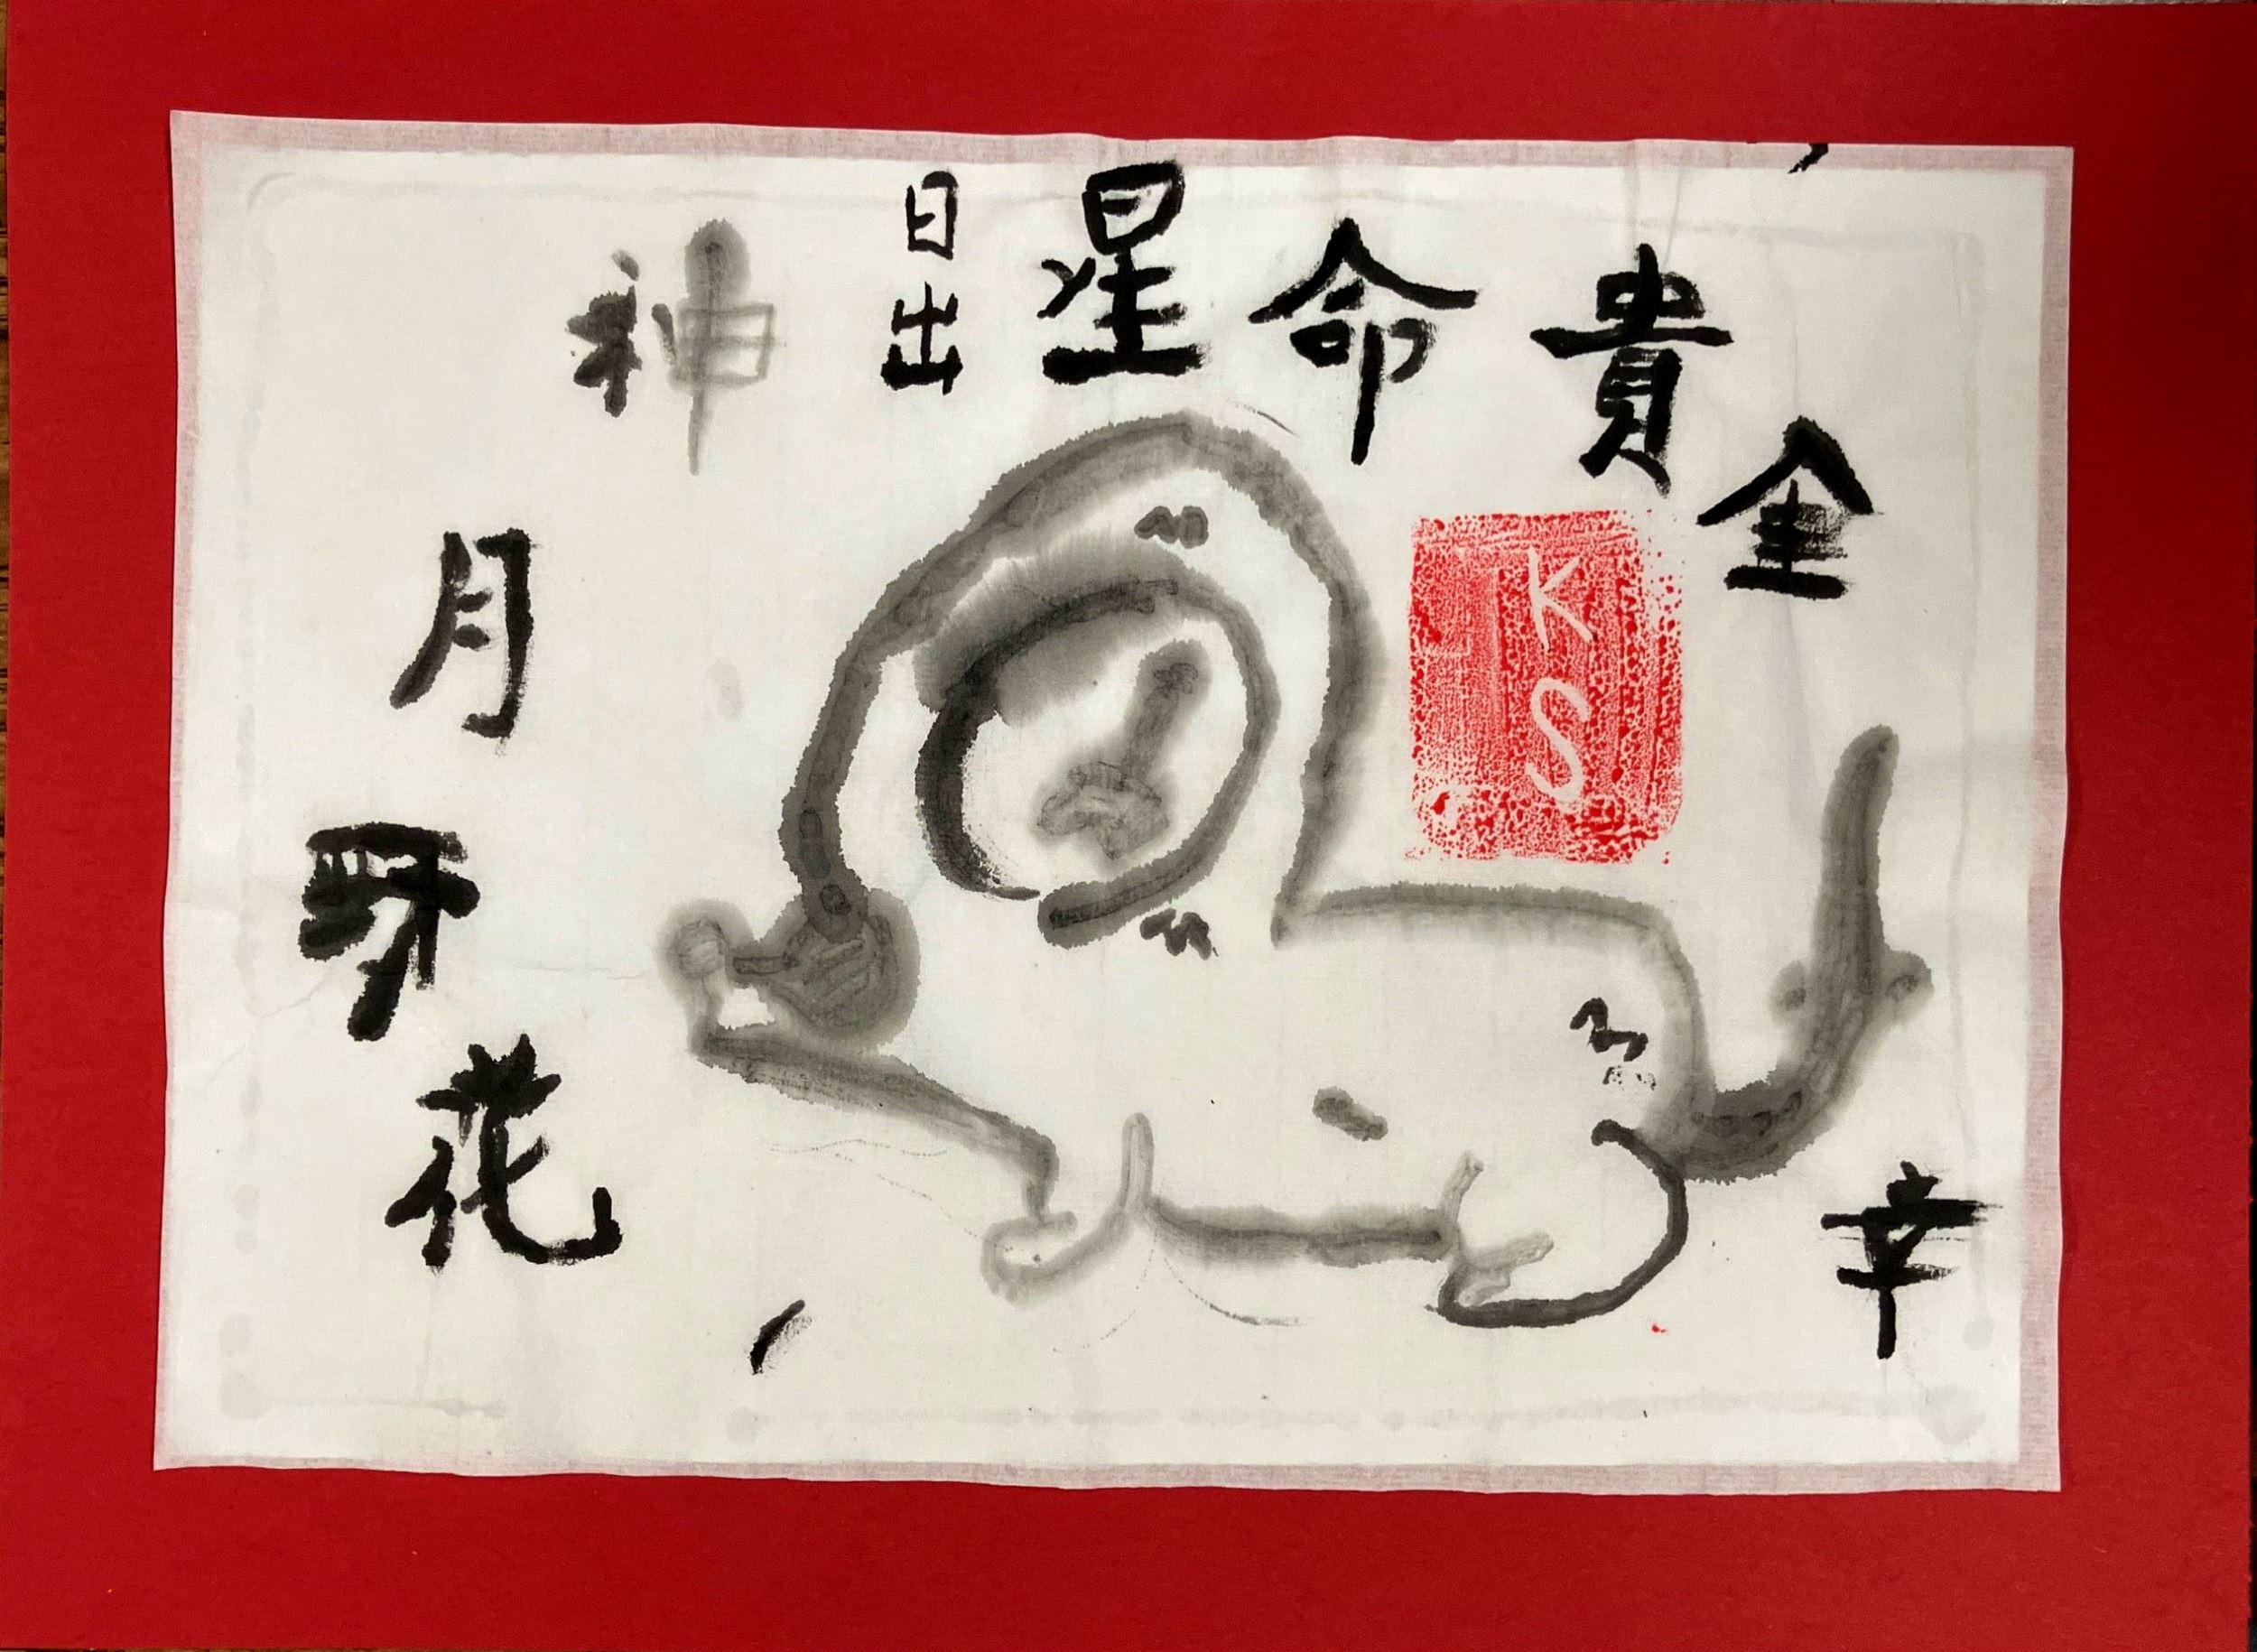 神
日出
星
命
貴
金
月
野
花
幸
K
S